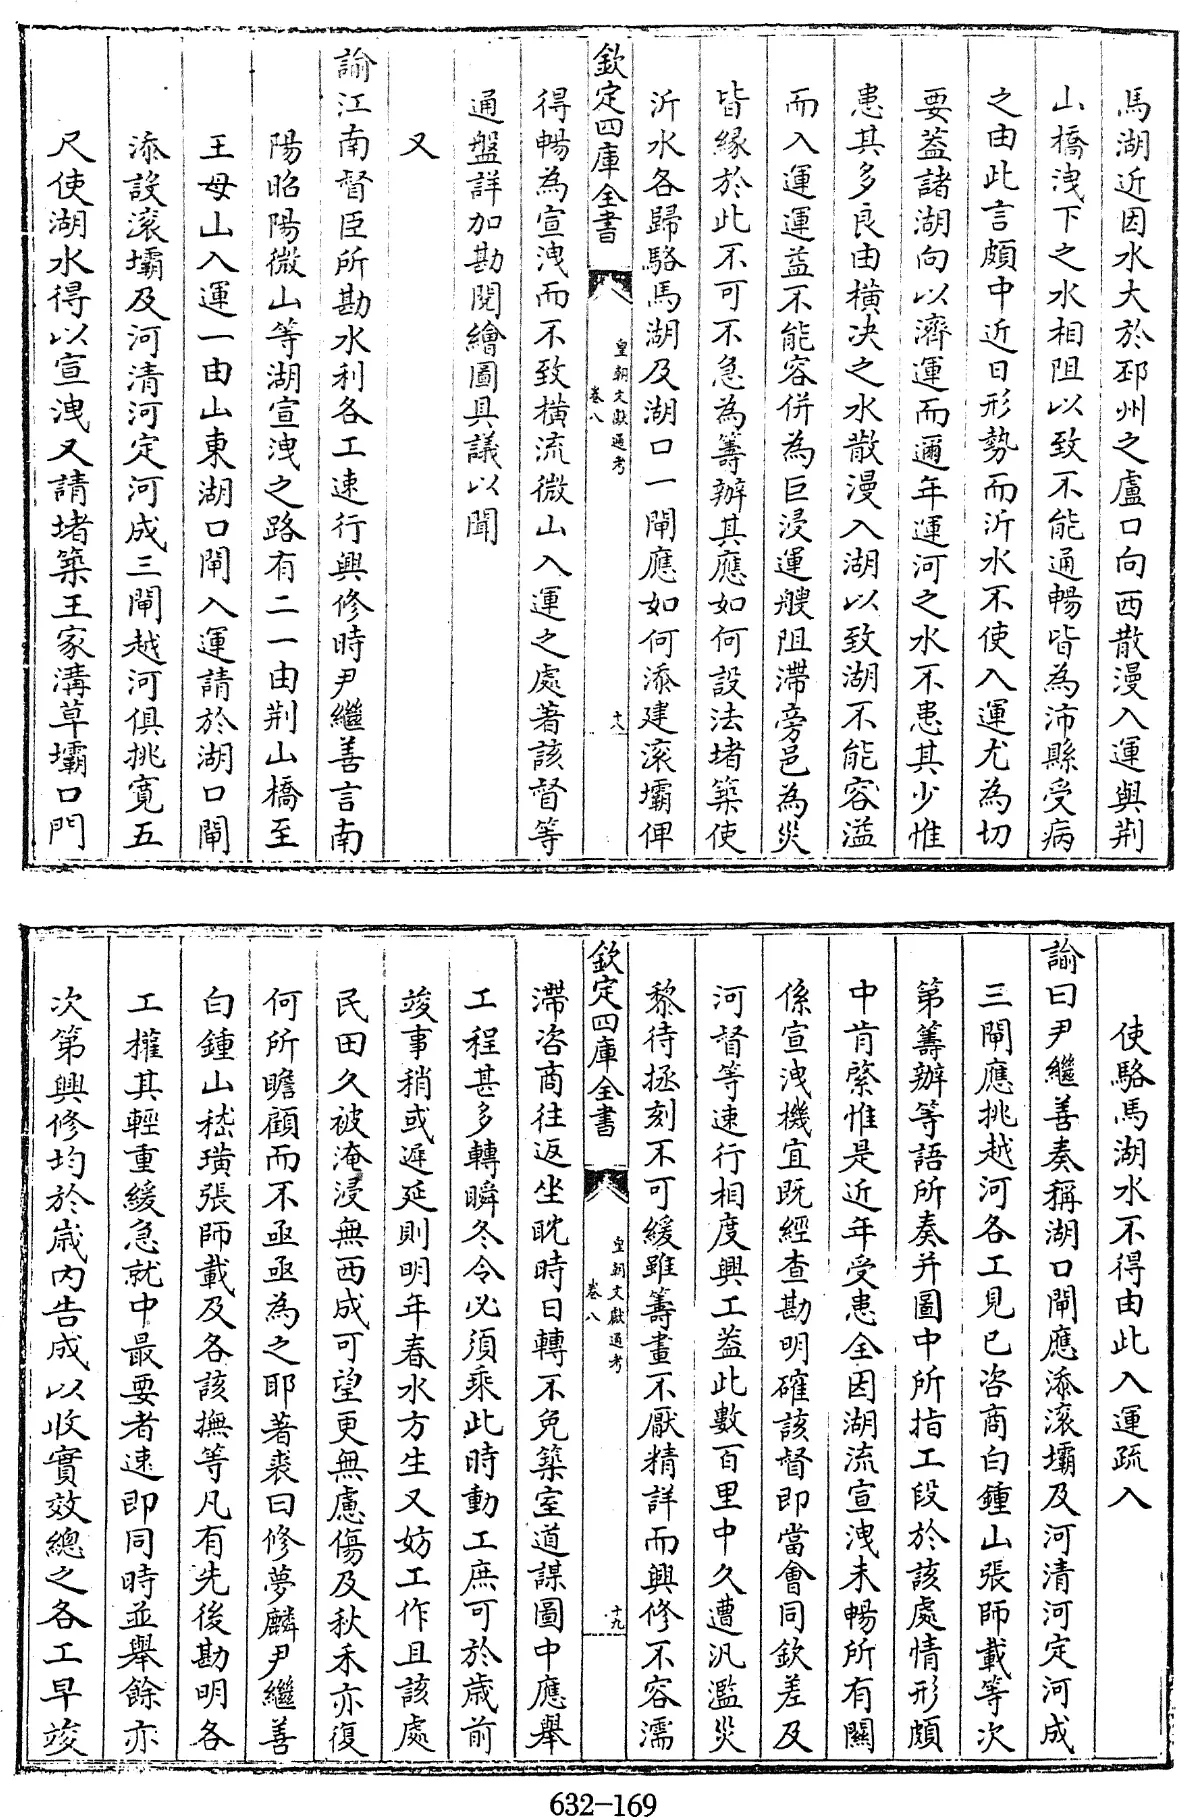 馬湖近因水大於邳州之盧口向西散漫入運與荆
山橋洩下之水相阻以致不能通暢皆為沛縣受病
之由此言頗中近日形勢而沂水不使入運尤為切
要葢諸湖向以濟運而邇年運河之水不患其少惟
患其多良由橫决之水散漫入湖以致湖不能容溢
而入運運益不能容併為巨浸運艘阻滯旁邑為災
皆緣於此不可不急為籌辦其應如何設法堵築使
沂水各歸駱馬湖及湖口一閘應如何添建滚壩俾
欽定四庫全書
皇朝文獻通考
卷八
十八
得暢為宣洩而不致橫流微山入運之處著該督等
通盤詳加勘閱繪圖具議以聞
又
諭江南督臣所勘水利各工速行興修時尹繼善言南
陽昭陽微山等湖宣洩之路有二一由荆山橋至
王母山入運一由山東湖口閘入運請於湖口閘
添設滚壩及河清河定河成三閘越河俱挑寛五
尺使湖水得以宣洩又請堵築王家溝草壩口門
使駱馬湖水不得由此入運疏入
諭曰尹繼善奏稱湖口閘應添滚壩及河清河定河成
三閘應挑越河各工見已咨商白鍾山張師載等次
第籌辦等語所奏并圖中所指工段於該處情形頗
中肯綮惟是近年受患全因湖流宣洩未暢所有關
係宣洩機宜既經查勘明確該督即當會同欽差及
河督等速行相度興工葢此數百里中久遭汎濫災
黎待拯刻不可緩雖籌畫不厭精詳而興修不容濡
欽定四庫全書
皇朝文獻通考
卷八
十九
滯咨商往返坐眈時日轉不免築室道謀圖中應舉
工程甚多轉瞬冬令必須乘此時動工庶可於歲前
竣事稍或遲延則明年春水方生又妨工作且該處
民田久被淹浸無西成可望更無慮傷及秋禾亦復
何所瞻顧而不亟亟為之耶著裘曰修夢麟尹繼善
白鍾山嵇璜張師載及各該撫等凡有先後勘明各
工權其輕重緩急就中最要者速即同時並舉餘亦
次第興修均於歲内告成以收實效總之各工早竣
632-169